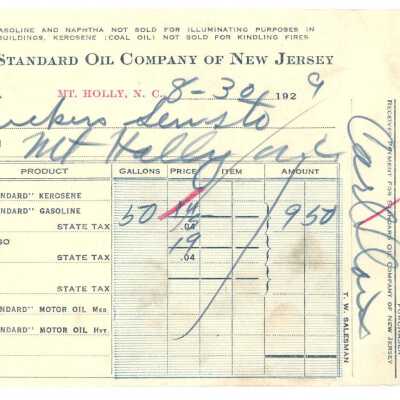 GASOLINE AND NAPHTHA NOT SOLD FOR ILLUMINATING PURPOSES IN
BUILDINGS, KEROSENE (COAL OIL) NOT SOLD FOR KINDLING FIRES
STANDARD OIL COMPANY OF NEW JERSEY
MT. HOLLY, N. C. 8-30 1929
Mt Holly nc
PRODUCT GALLONS PRICE ITEM AMOUNT
NDARD" KEROSENE
NDARD" GASOLINE 50 9 50
STATE TAX .04
SO 19
STATE TAX .04
STATE TAX
NDARD" MOTOR OIL MED
NDARD" MOTOR OIL HVY.
T. W. SALESMAN
RECEIVED PAYMENT FOR STANDARD OIL COMPANY OF NEW JERSEY
Carl
PURCHASER